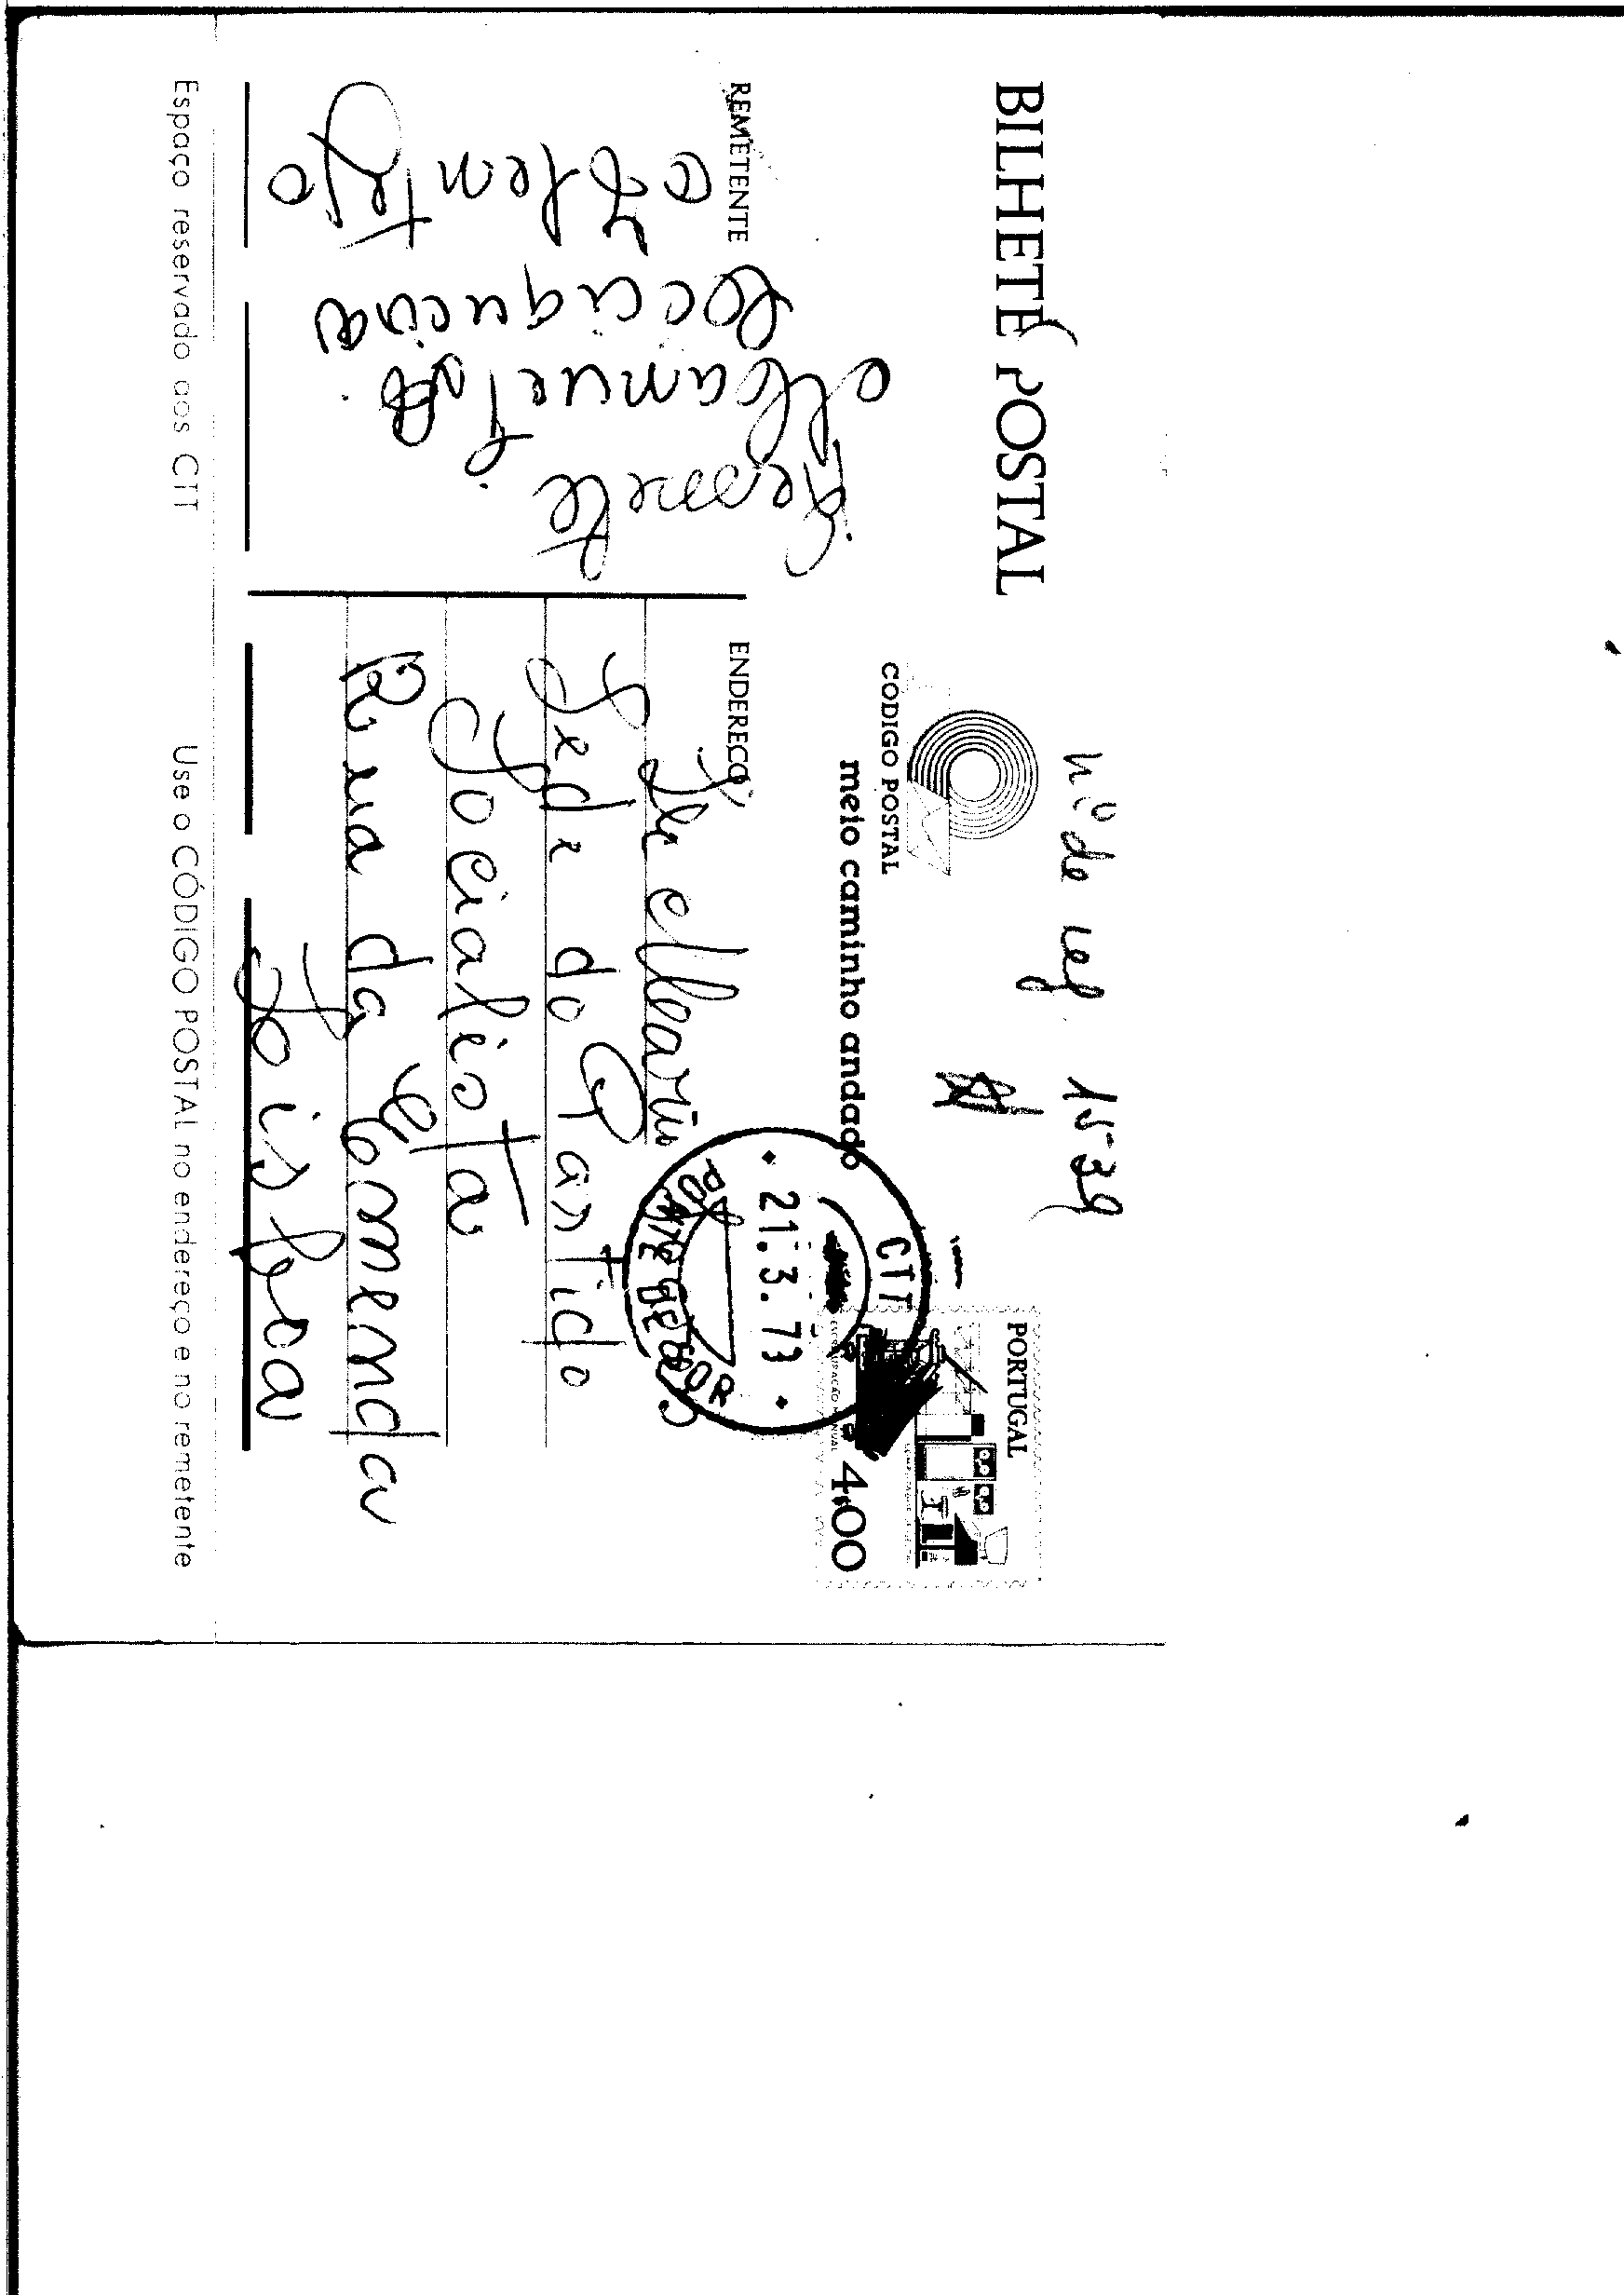 nº de reg 15-39
BILHETE POSTAL
CODIGO POSTAL
meio caminho andado
PORTUGAL
4,00
CTT
21.3.79
PONTE DE SOR
REMETENTE
Remete
Manuel
Alentejo
ENDEREÇO
Dr Mário
Sede do Partido
Socialista
Rua da Emenda
Lisboa
Espaço reservado aos CTT
Use o CÓDIGO POSTAL no endereço e no remetente